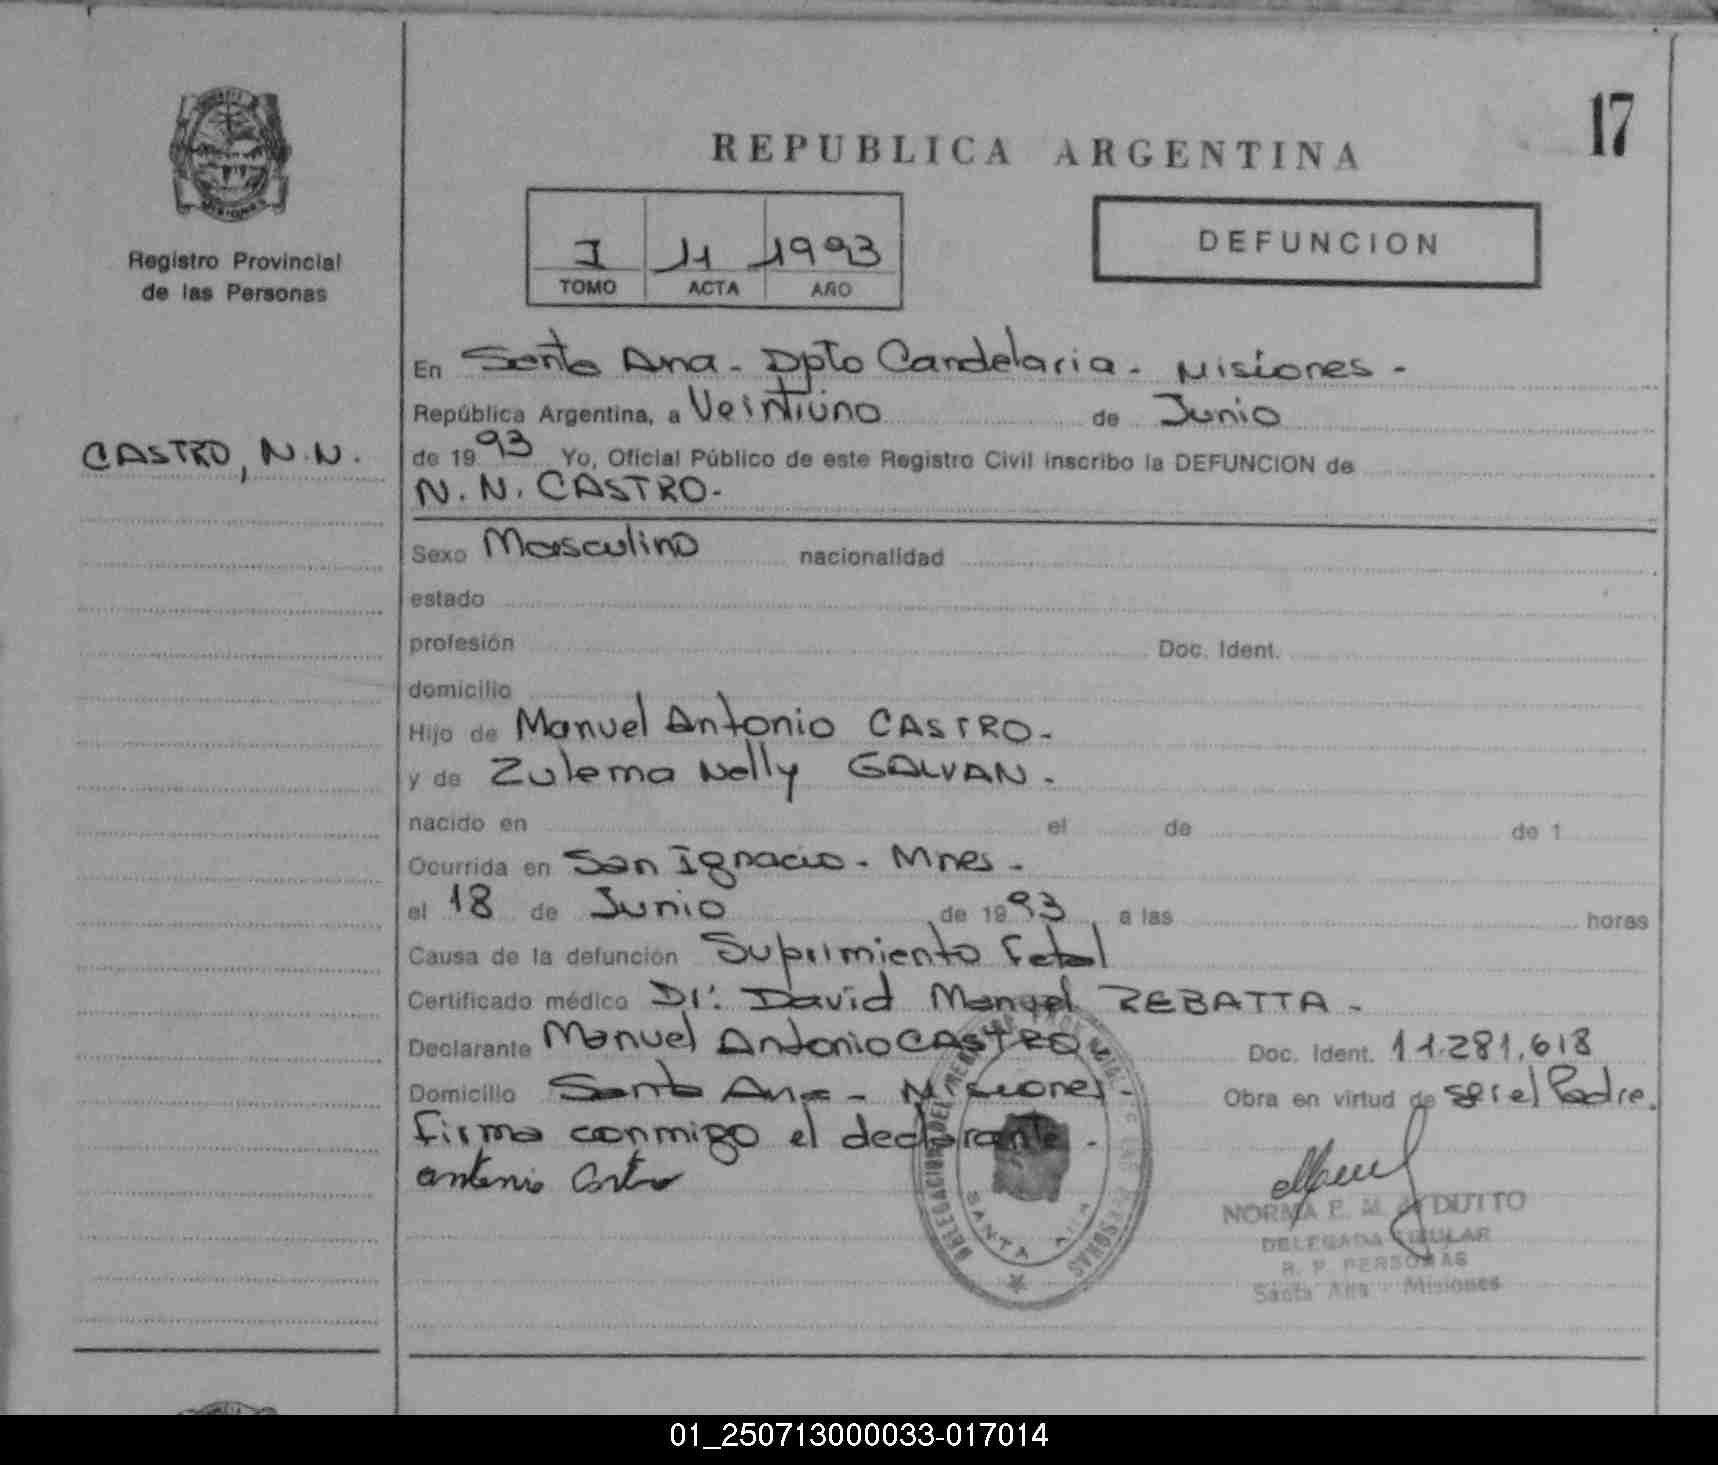 17
REPUBLICA ARGENTINA
MISIONES
Registro Provincial
de las Personas
I 11 1993
TOMO ACTA AÑO
DEFUNCION
En Santa Ana - Dpto Candelaria - Misiones -
República Argentina, a Veintiuno de Junio
CASTRO, N.N.
de 1993 Yo, Oficial Público de este Registro Civil inscribo la DEFUNCION de
N.N. CASTRO-
Sexo Masculino nacionalidad
estado
profesión Doc. Ident.
domicilio
Hijo de Manuel Antonio CASTRO-
y de Zulema Nelly GALVAN-
nacido en el de de 1
Ocurrida en San Ignacio - Mnes -
el 18 de Junio de 1993 a las horas
Causa de la defunción Suprimiento Fetal
Certificado médico Dr. David Manuel ZEBATTA -
Declarante Manuel Antonio CASTRO Doc. Ident. 11.281.618
Domicilio Santa Ana - Misiones - Obra en virtud de ser el Padre.
Firma conmigo el declarante -
antonio Castro
DELEGACION DEL DE LAS PERSONAS
SANTA ANA
NORMA E. M. DUTTO
DELEGADA TITULAR
R. P. PERSONAS
Santa Ana - Misiones
01_250713000033-017014